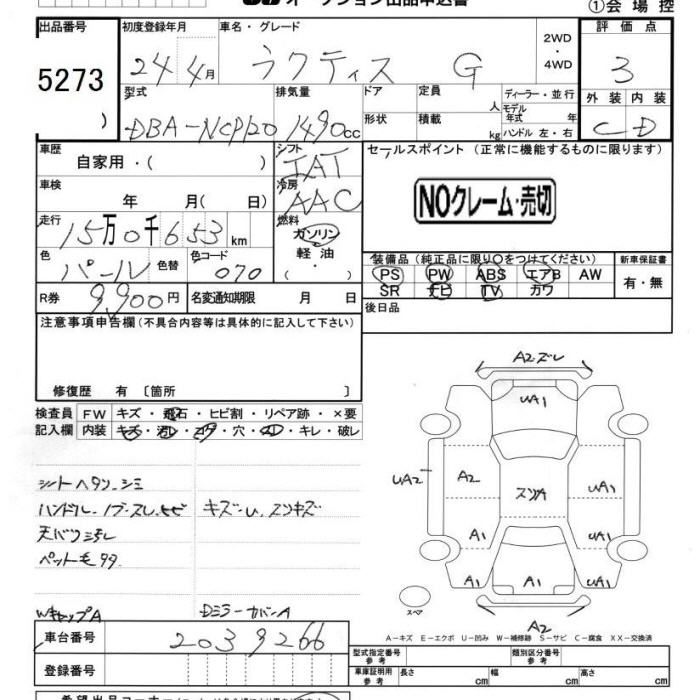 ①会場控
出品番号 初度登録年月 車名・グレード 評価点
5273 24年4月 ラクティス G 2WD・4WD 3
型式 排気量 ドア 定員 人 ディーラー・並行 外装 内装
DBA-NCP120 1490cc 形状 積載 kg モデル年式 年 ハンドル 左・右 C D
車歴 シフト セールスポイント (正常に機能するものに限ります)
自家用・( ) IAT
車検 年 月( 日) 冷房 AAC NOクレーム・売切
走行 15万0千653km 燃料 ガソリン 軽油 ( ・ )
色 パール 色替 色コード 070
装備品 (純正品に限り○をつけてください) 新車保証書
PS PW ABS エアB AW 有・無
SR ナビ TV カワ
R券 9,900円 名変通知期限 月 日 後日品
注意事項申告欄(不具合内容等は具体的に記入して下さい)
修復歴 有 〔箇所 〕
検査員 FW キズ・飛石・ヒビ割・リペア跡・×要
記入欄 内装 コゲ・穴・キレ・破レ
シートヘタリ・シミ
ハンドル・ノブスレ・ヒビ キズ・U、スリキズ
天バリ汚レ
ペット毛
WキャップA DミラーカバーA
A2ズレ
UA1
UA2 A2 スリA UA1
A1 UA1
A1 A1 UA1
スペア
A2
A-キズ E-エクボ U-凹み W-補修跡 S-サビ C-腐食 XX-交換済
車台番号 2039266 型式指定番号 参考 類別区分番号 参考
登録番号 車庫証明用 参考 長さ cm 幅 cm 高さ cm